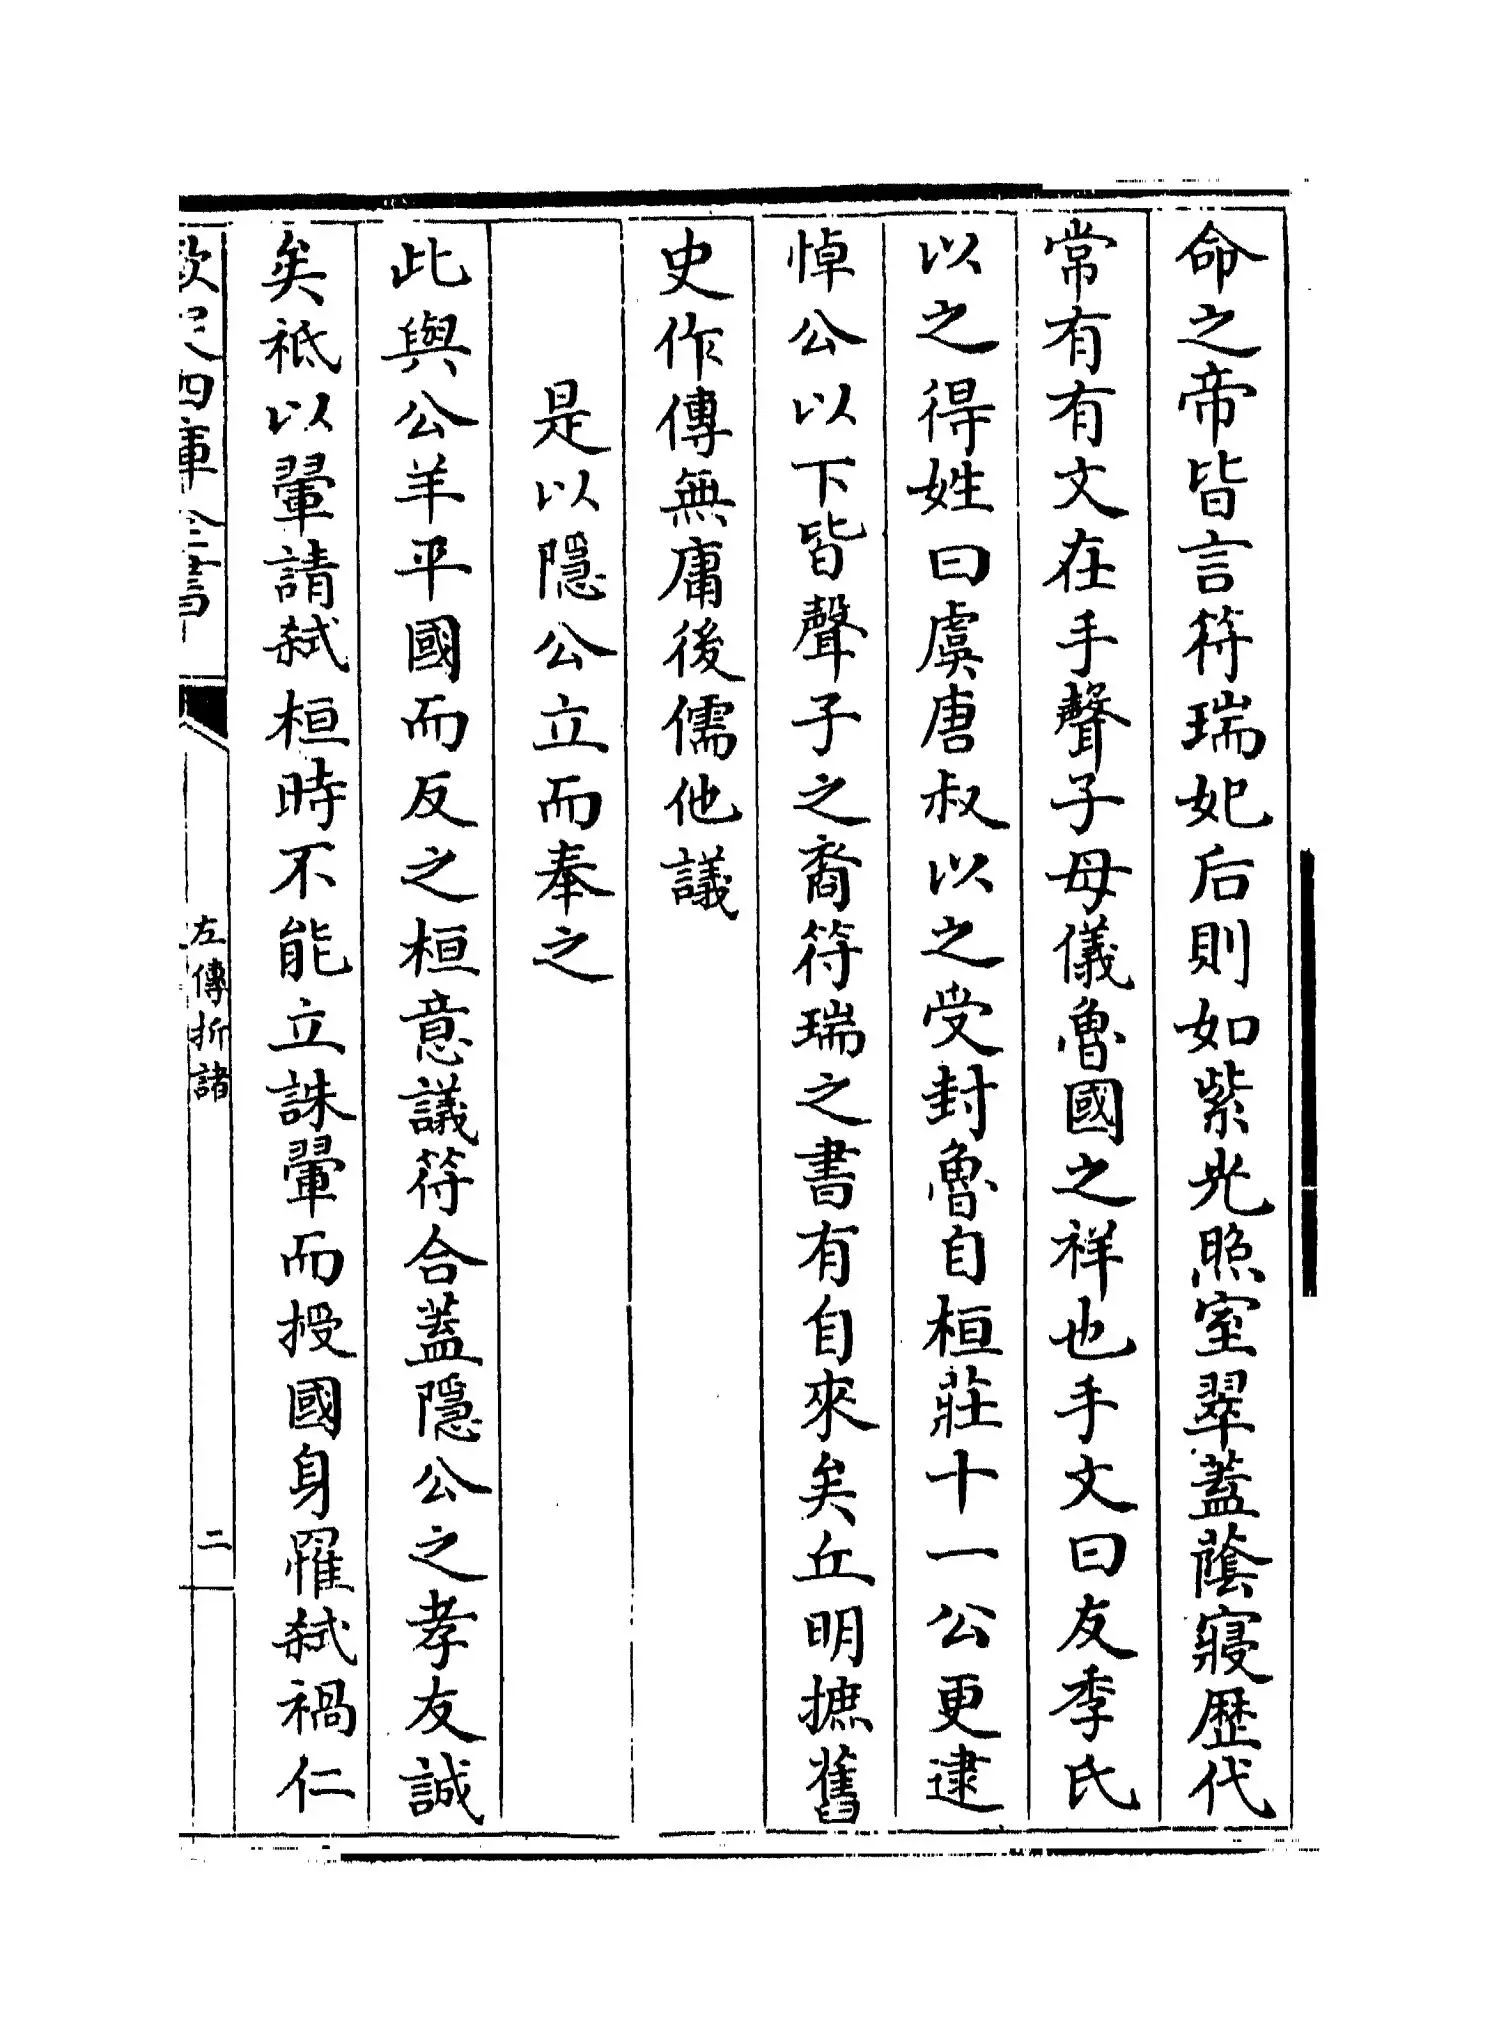 命之帝皆言符瑞妃后則如紫光照室翠蓋蔭寢歷代
常有有文在手聲子母儀魯國之祥也手文曰友季氏
以之得姓曰虞唐叔以之受封魯自桓莊十一公更逮
悼公以下皆聲子之裔符瑞之書有自來矣丘明摭舊
史作傳無庸後儒他議
是以隱公立而奉之
此與公羊平國而反之桓意議符合蓋隱公之孝友誠
矣袛以翬請弑桓時不能立誅翬而授國身罹弑禍仁
欽定四庫全書
左傳折諸
二